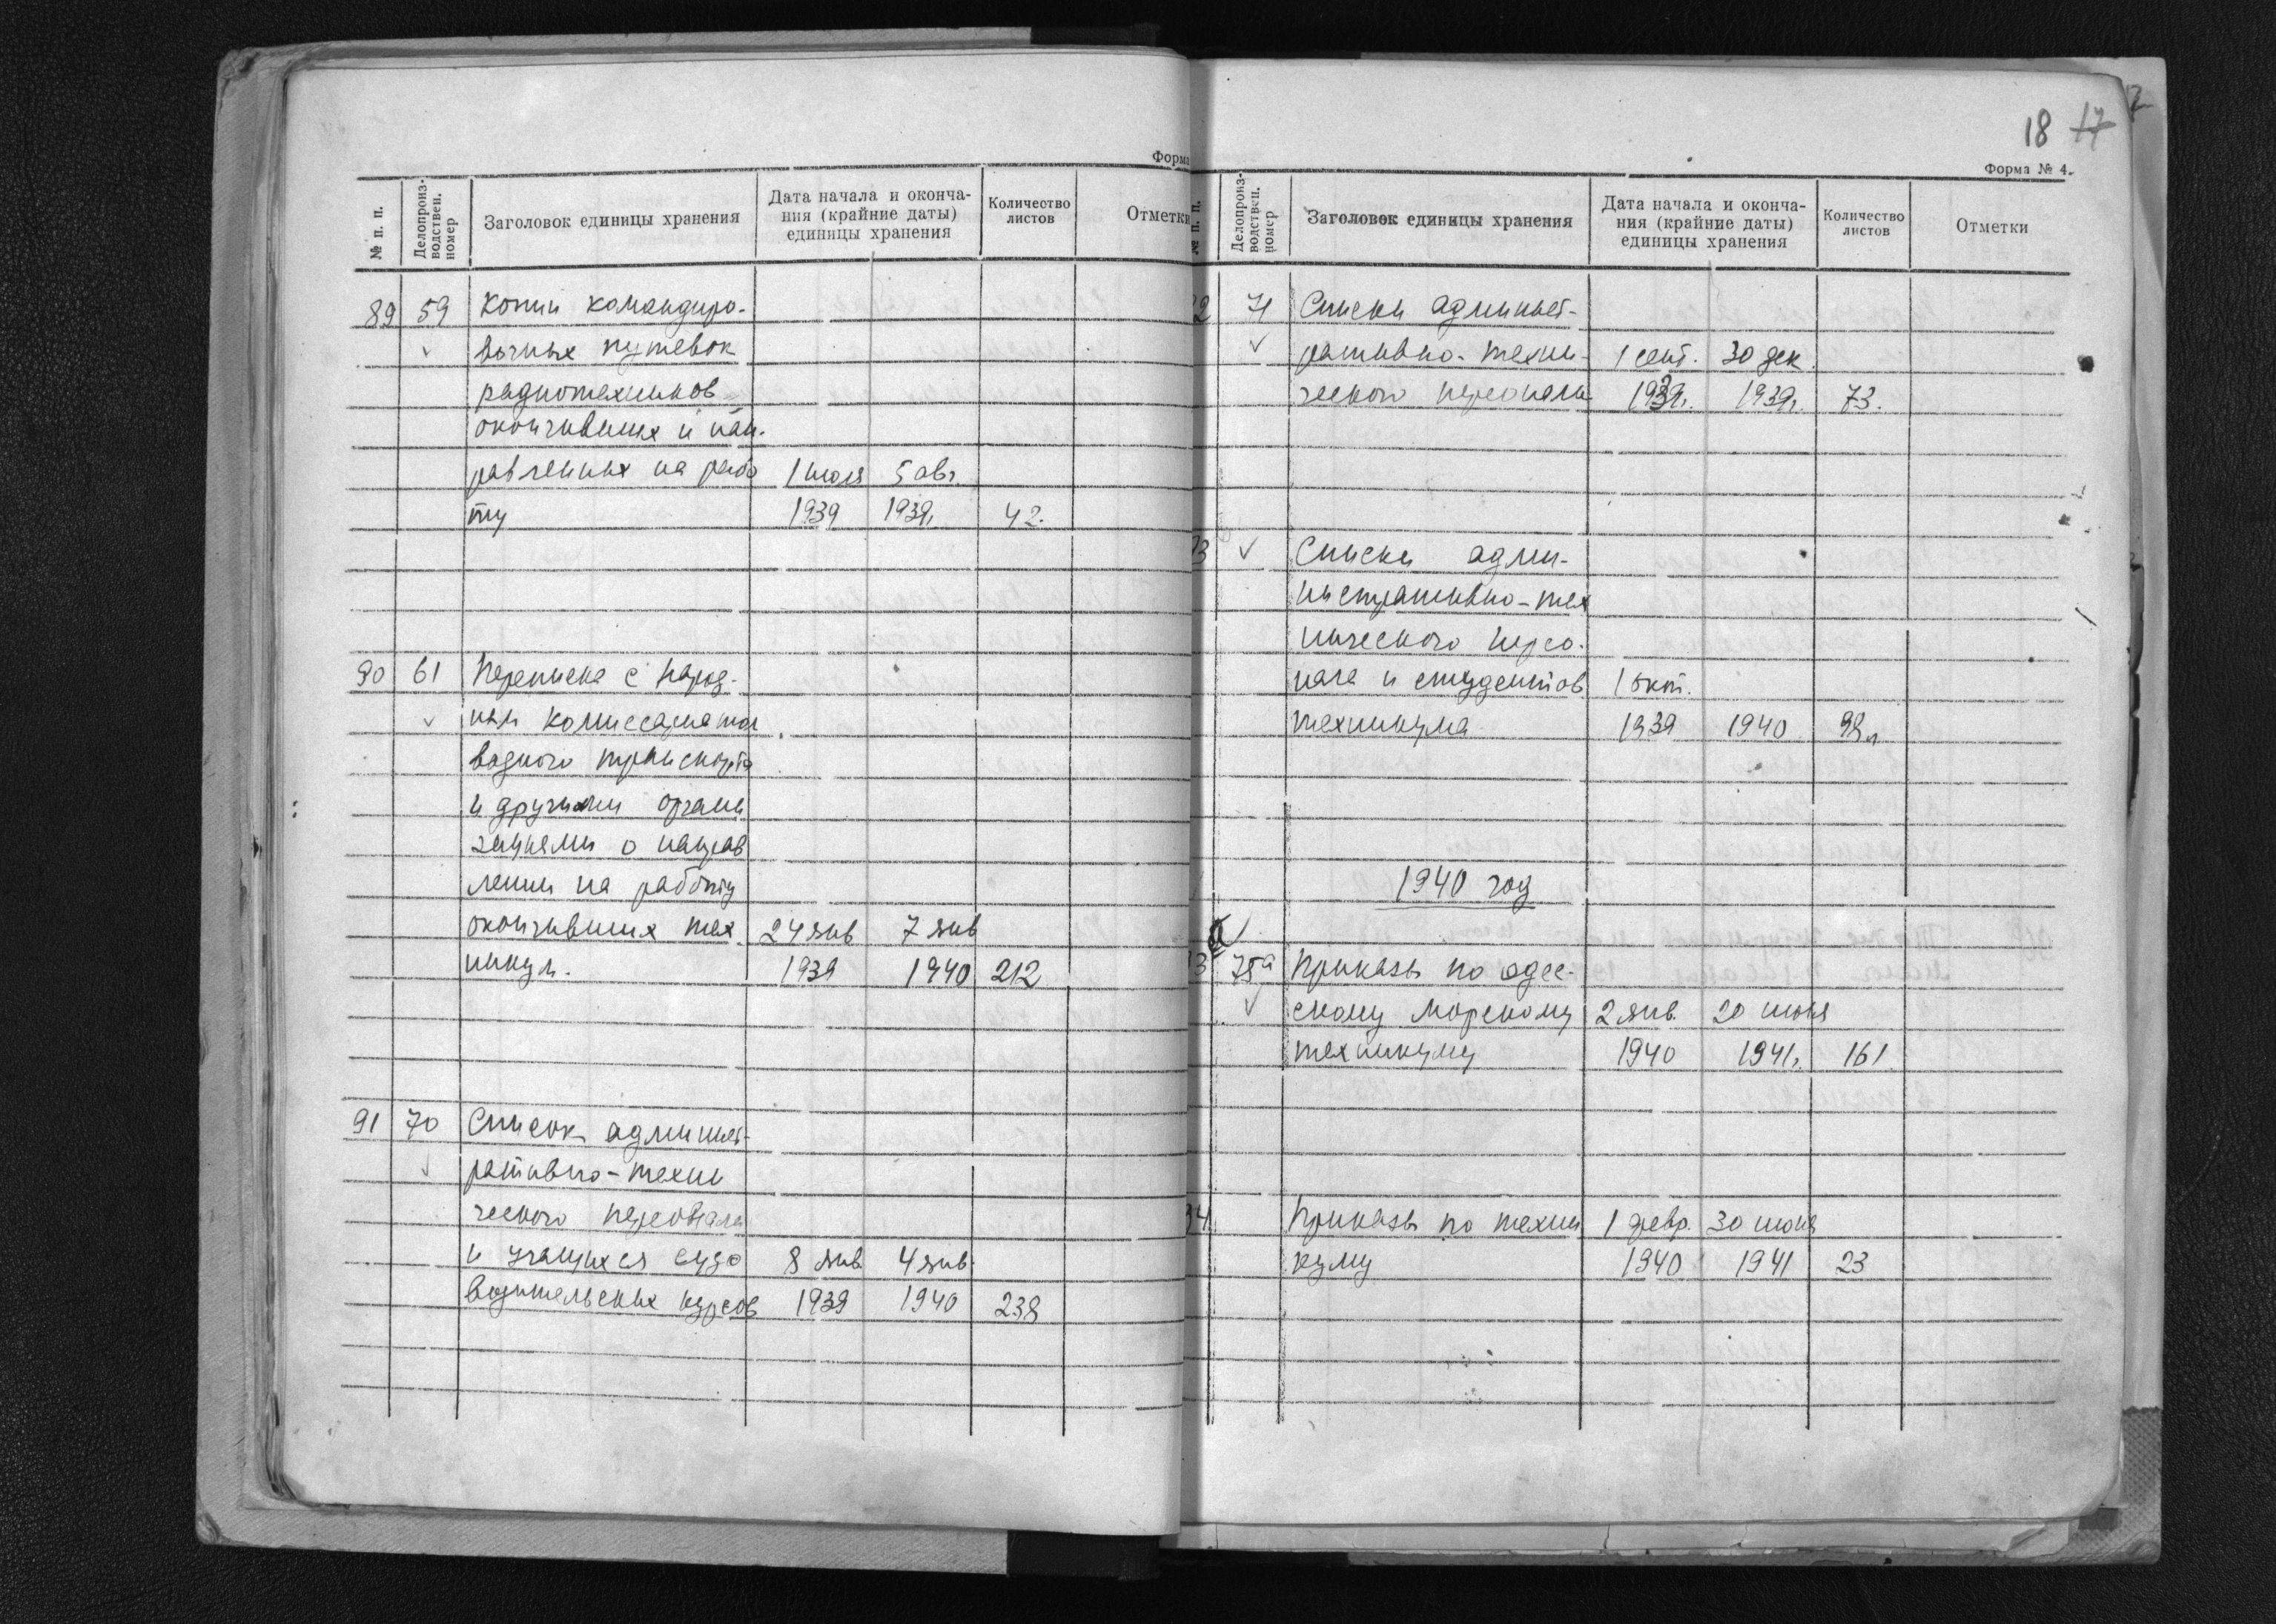 Форма
№ п. п.
Делопроиз-
водствен.
номер
Заголовок единицы хранения
Дата начала и оконча-
ния (крайние даты)
единицы хранения
Количество
листов
Отметки
89 59 Копии командиро-
вочных путевок
радиотехников
окончивших и нап-
равленных на рабо
1 июля 5 авг.
ту 1939 1939г. 42.
90 61 Переписка с Народ-
ным комиссариатом
водного транспорта
и другими органи
зациями о направ
лении на работу
окончивших тех 24 янв 7 янв
никум. 1939 1940 212
91 70 Список админист-
ративно-техни
ческого персонала
и учащихся судо 8 янв 4 янв.
водительских курсов 1939 1940 238
18 17
Форма № 4.
№ п. п.
Делопроиз-
водствен.
номер
Заголовок единицы хранения
Дата начала и оконча-
ния (крайние даты)
единицы хранения
Количество
листов
Отметки
2 71 Списки админист-
ративно-техни- 1 сент. 30 дек.
ческого персонала 1939г. 1939г. 73.
3 Списки адми-
нистративно-тех
нического персо-
нала и студентов 1 окт.
техникума 1939 1940 98л
1940 год
а
3 75а Приказы по одес-
скому морскому 2 янв. 20 июня
техникуму 1940 1941г. 161
94 Приказы по техни 1 февр. 30 июня
куму 1940 1941 23